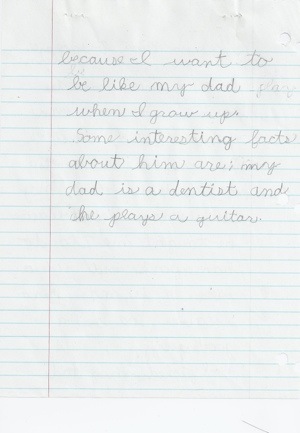 because I want to
be like my dad
when I grow up.
Some interesting facts
about him are; my
dad is a dentist and
he plays a guitar.